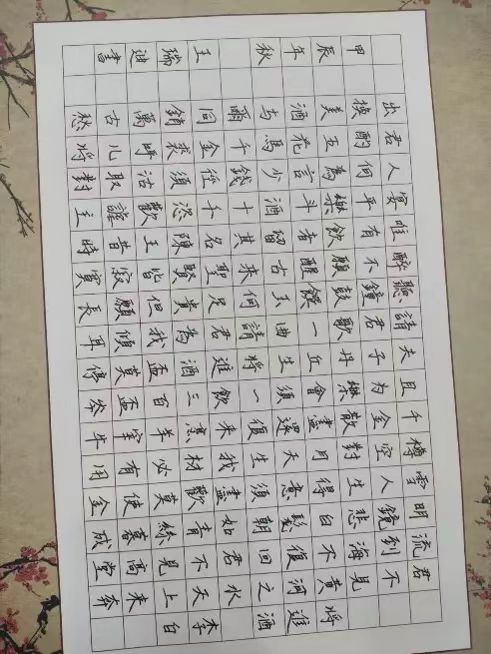 將進酒 李白
君不見黃河之水天上來奔
流到海不復回君不見高堂
明鏡悲白髮朝如青絲暮成
雪人生得意須盡歡莫使金
樽空對月天生我材必有用
千金散盡還復來烹羊宰牛
且為樂會須一飲三百盃岑
夫子丹丘生將進酒盃莫停
請君歌一曲請君為我傾耳
聽鐘鼓饌玉何足貴但願長
醉不願醒古來聖賢皆寂寞
唯有飲者留其名陳王昔時
宴平樂斗酒十千恣歡謔主
人何為言少錢徑須沽取對
君酌五花馬千金裘呼儿將
出換美酒与爾同銷萬古愁
甲辰年秋 王瑞迪書